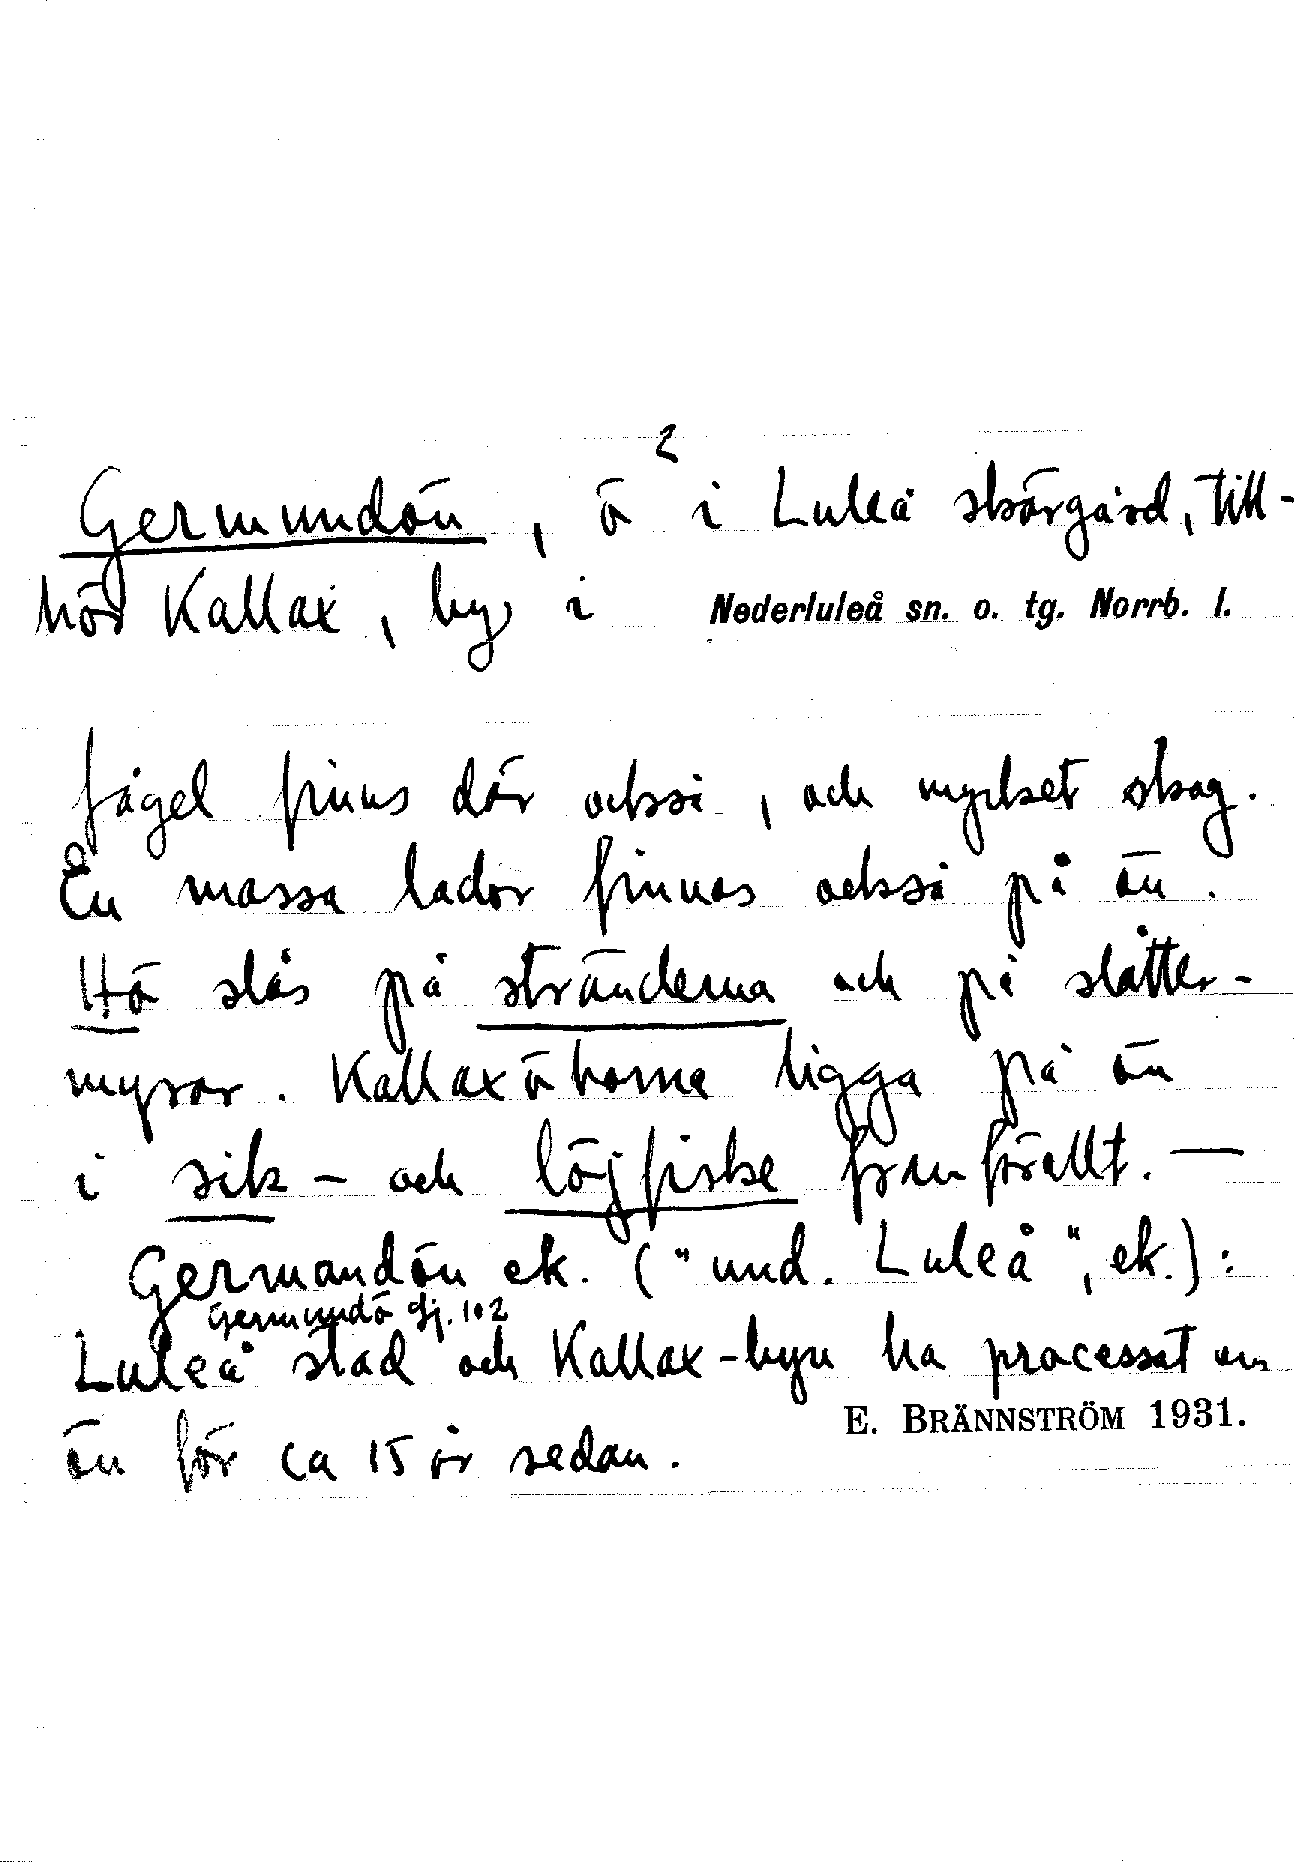 2
Germundön, ö i Luleå skärgård, till-
hör Kallax, by i Nederluleå sn. o. tg. Norrb. l.
fågel finns där också, och mycket skog.
En massa lador finnas också på ön.
Hö slås på stränderna och på slåtter-
myrar. Kallaxöborna ligga på ön
i sik- och löjfiske framförallt. —
Germandön ek. ("und. Luleå", ek.):
Germundö gj. 102
Luleå stad och Kallax-byn ha processat om
ön för ca 15 år sedan.
E. BRÄNNSTRÖM 1931.